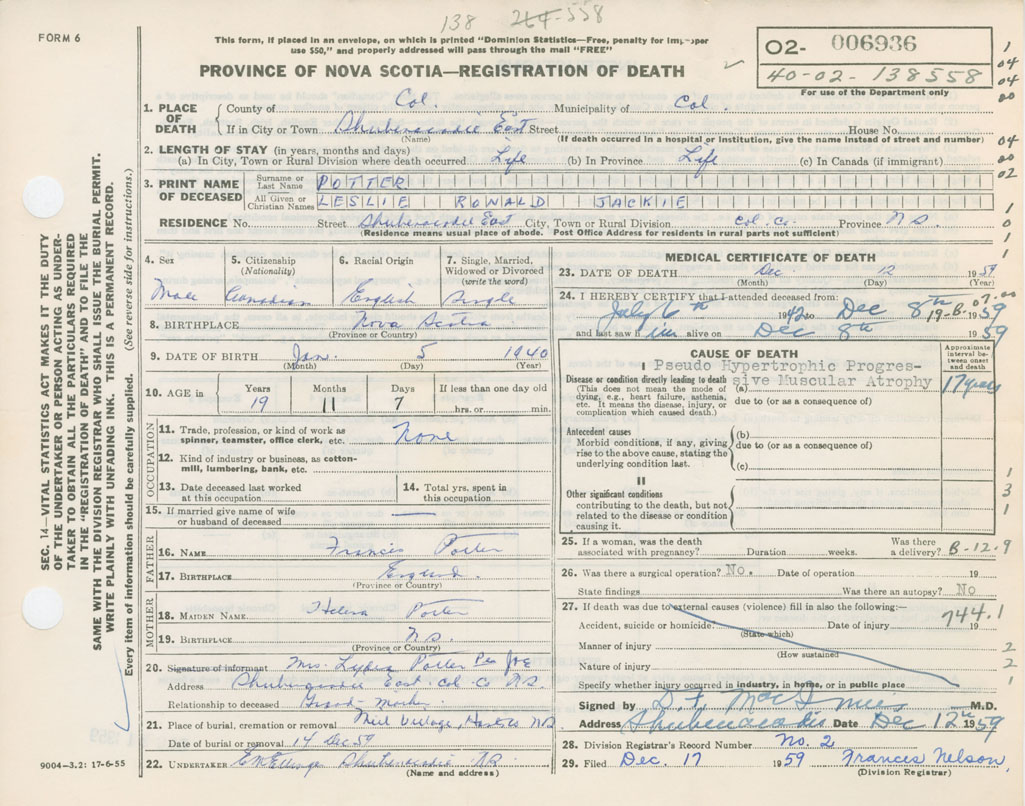 138 264-558
FORM 6
This form, if placed in an envelope, on which is printed "Dominion Statistics—Free, penalty for improper
use $50," and properly addressed will pass through the mail "FREE"
PROVINCE OF NOVA SCOTIA—REGISTRATION OF DEATH
02- 006936
40-02-138558
For use of the Department only
1. PLACE OF DEATH
County of Col. Municipality of Col.
If in City or Town Shubenacadie East Street House No.
(Name) (If death occurred in a hospital or institution, give the name instead of street and number)
2. LENGTH OF STAY (in years, months and days)
(a) In City, Town or Rural Division where death occurred Life (b) In Province Life (c) In Canada (if immigrant)
3. PRINT NAME OF DECEASED
Surname or Last Name POTTER
All Given or Christian Names LESLIE RONALD JACKIE
RESIDENCE No. Street Shubenacadie East City, Town or Rural Division Col. Co. Province N S
(Residence means usual place of abode. Post Office Address for residents in rural parts not sufficient)
4. Sex Male
5. Citizenship (Nationality) Canadian
6. Racial Origin English
7. Single, Married, Widowed or Divorced (write the word) Single
8. BIRTHPLACE Nova Scotia
(Province or Country)
9. DATE OF BIRTH Jan. 5 1940
(Month) (Day) (Year)
10. AGE in Years 19 Months 11 Days 7 If less than one day old hrs. or min.
OCCUPATION
11. Trade, profession, or kind of work as spinner, teamster, office clerk, etc. None
12. Kind of industry or business, as cotton-mill, lumbering, bank, etc.
13. Date deceased last worked at this occupation
14. Total yrs. spent in this occupation
15. If married give name of wife or husband of deceased —
FATHER
16. NAME Francis Potter
17. BIRTHPLACE England.
(Province or Country)
MOTHER
18. MAIDEN NAME Helena Potter
19. BIRTHPLACE N S.
(Province or Country)
20. Signature of informant Mrs. Lydia Potter Per JOE
Address Shubenacadie East Col. Co N.S.
Relationship to deceased Grand-mother
21. Place of burial, cremation or removal Mill Village, Hants Co NS
Date of burial or removal 14 Dec 59
22. UNDERTAKER Shubenacadie NS
(Name and address)
9004-3.2: 17-6-55
MEDICAL CERTIFICATE OF DEATH
23. DATE OF DEATH Dec. 12 1959
(Month) (Day) (Year)
24. I HEREBY CERTIFY that I attended deceased from:
July 6th 1942 to Dec 8th 1959
19-B. 07.00
and last saw him alive on Dec 8th 1959
CAUSE OF DEATH
Approximate interval between onset and death
I
Disease or condition directly leading to death (a) Pseudo Hypertrophic Progressive Muscular Atrophy 17 years
(This does not mean the mode of dying, e.g., heart failure, asthenia, etc. It means the disease, injury, or complication which caused death.)
due to (or as a consequence of)
Antecedent causes
Morbid conditions, if any, giving rise to the above cause, stating the underlying condition last.
(b)
due to (or as a consequence of)
(c)
II
Other significant conditions
contributing to the death, but not related to the disease or condition causing it.
25. If a woman, was the death associated with pregnancy? Duration weeks. Was there a delivery? B-12.9
26. Was there a surgical operation? No. Date of operation 19
State findings Was there an autopsy? No
27. If death was due to external causes (violence) fill in also the following:—
744.1
Accident, suicide or homicide. Date of injury 19
(State which)
Manner of injury
(How sustained)
Nature of injury
Specify whether injury occurred in industry, in home, or in public place
Signed by D. F. MacInnis M.D.
Address Shubenacadie Date Dec 12th 1959
28. Division Registrar's Record Number No. 2
29. Filed Dec. 17 1959 Frances Nelson,
(Division Registrar)
SEC. 14—VITAL STATISTICS ACT MAKES IT THE DUTY
OF THE UNDERTAKER OR PERSON ACTING AS UNDER-
TAKER TO OBTAIN ALL THE PARTICULARS REQUIRED
IN THE "REGISTRATION OF DEATH" AND TO FILE THE
SAME WITH THE DIVISION REGISTRAR WHO SHALL ISSUE THE BURIAL PERMIT.
WRITE PLAINLY WITH UNFADING INK. THIS IS A PERMANENT RECORD.
Every item of information should be carefully supplied. (See reverse side for instructions.)
1
04
04
00
04
00
02
1
0
1
1
1
3
1
2
2
1